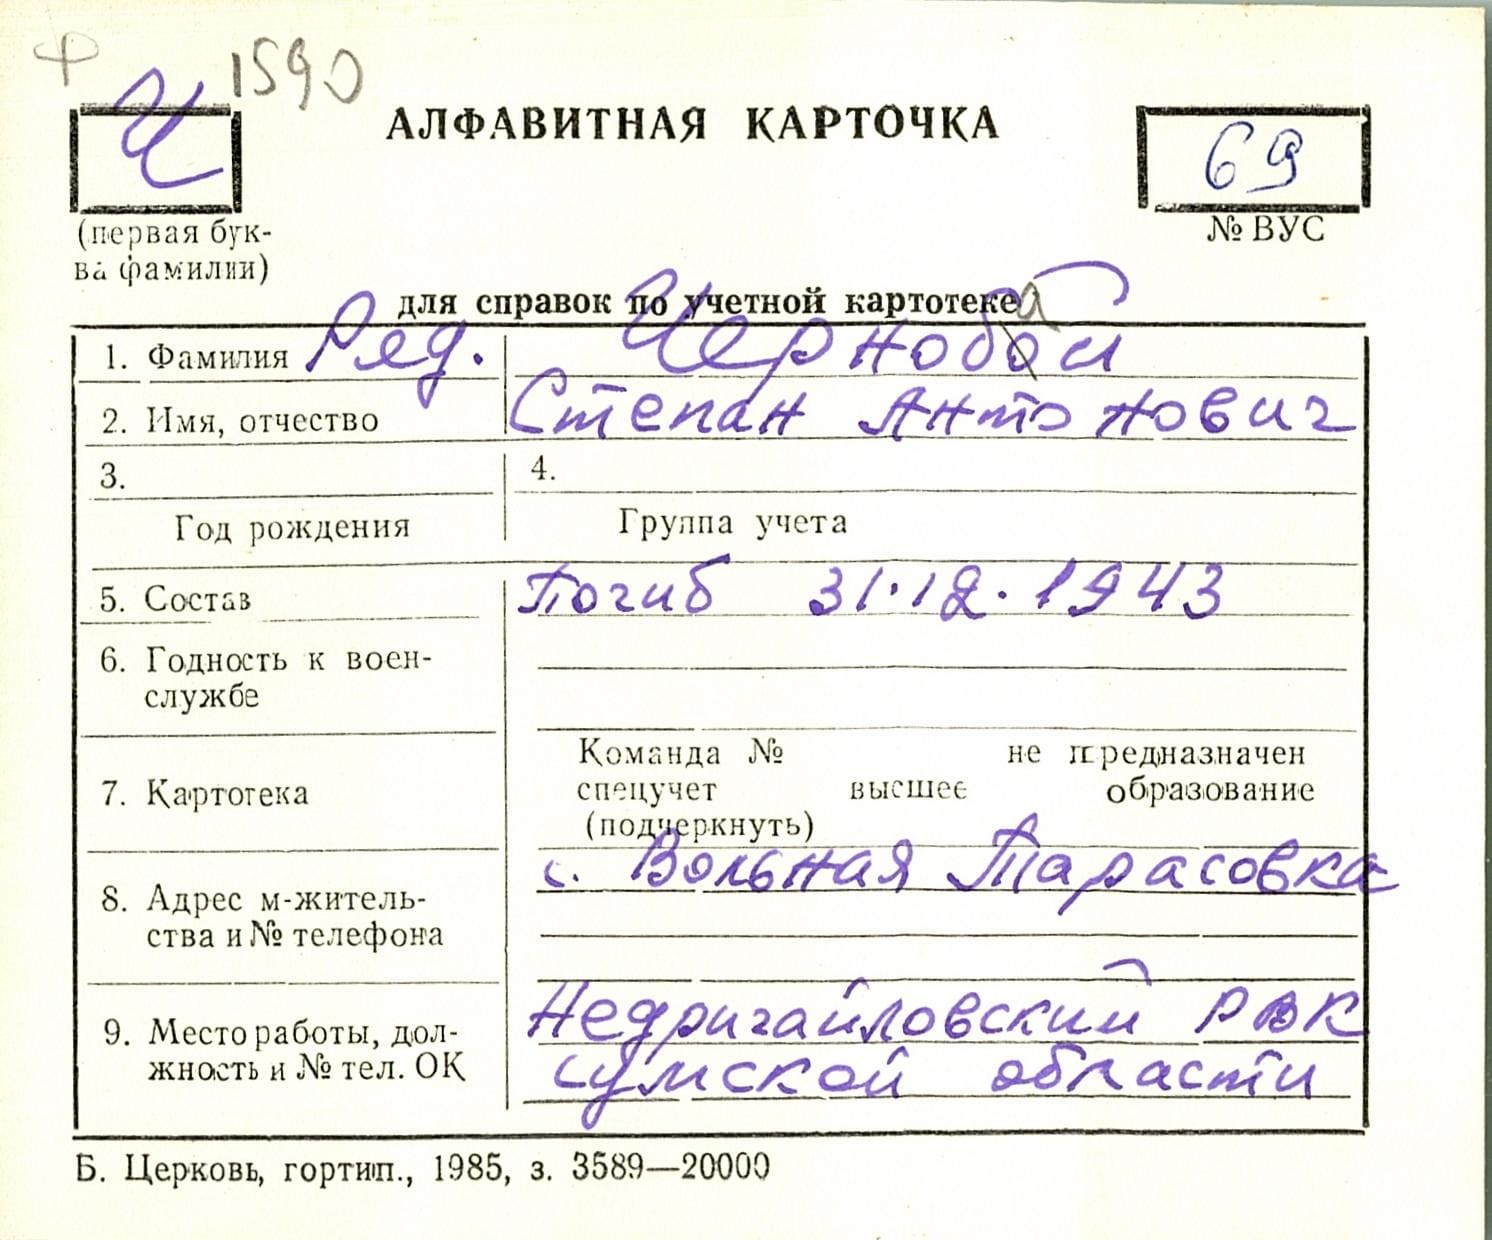 1590
Ч
АЛФАВИТНАЯ КАРТОЧКА
69
(первая бук-
ва фамилии)
№ ВУС
для справок по учетной картотеке
1. Фамилия Ряд. Чернобай
2. Имя, отчество Степан Антонович
3. 4.
Год рождения Группа учета
5. Состав Погиб 31.12.1943
6. Годность к воен-
службе
Команда № не предназначен
7. Картотека спецучет высшее образование
(подчеркнуть)
с. Вольная Тарасовка
8. Адрес м-житель-
ства и № телефона
Недригайловский РВК
9. Место работы, дол-
жность и № тел. ОК
Сумской области
Б. Церковь, гортип., 1985, з. 3589—20000